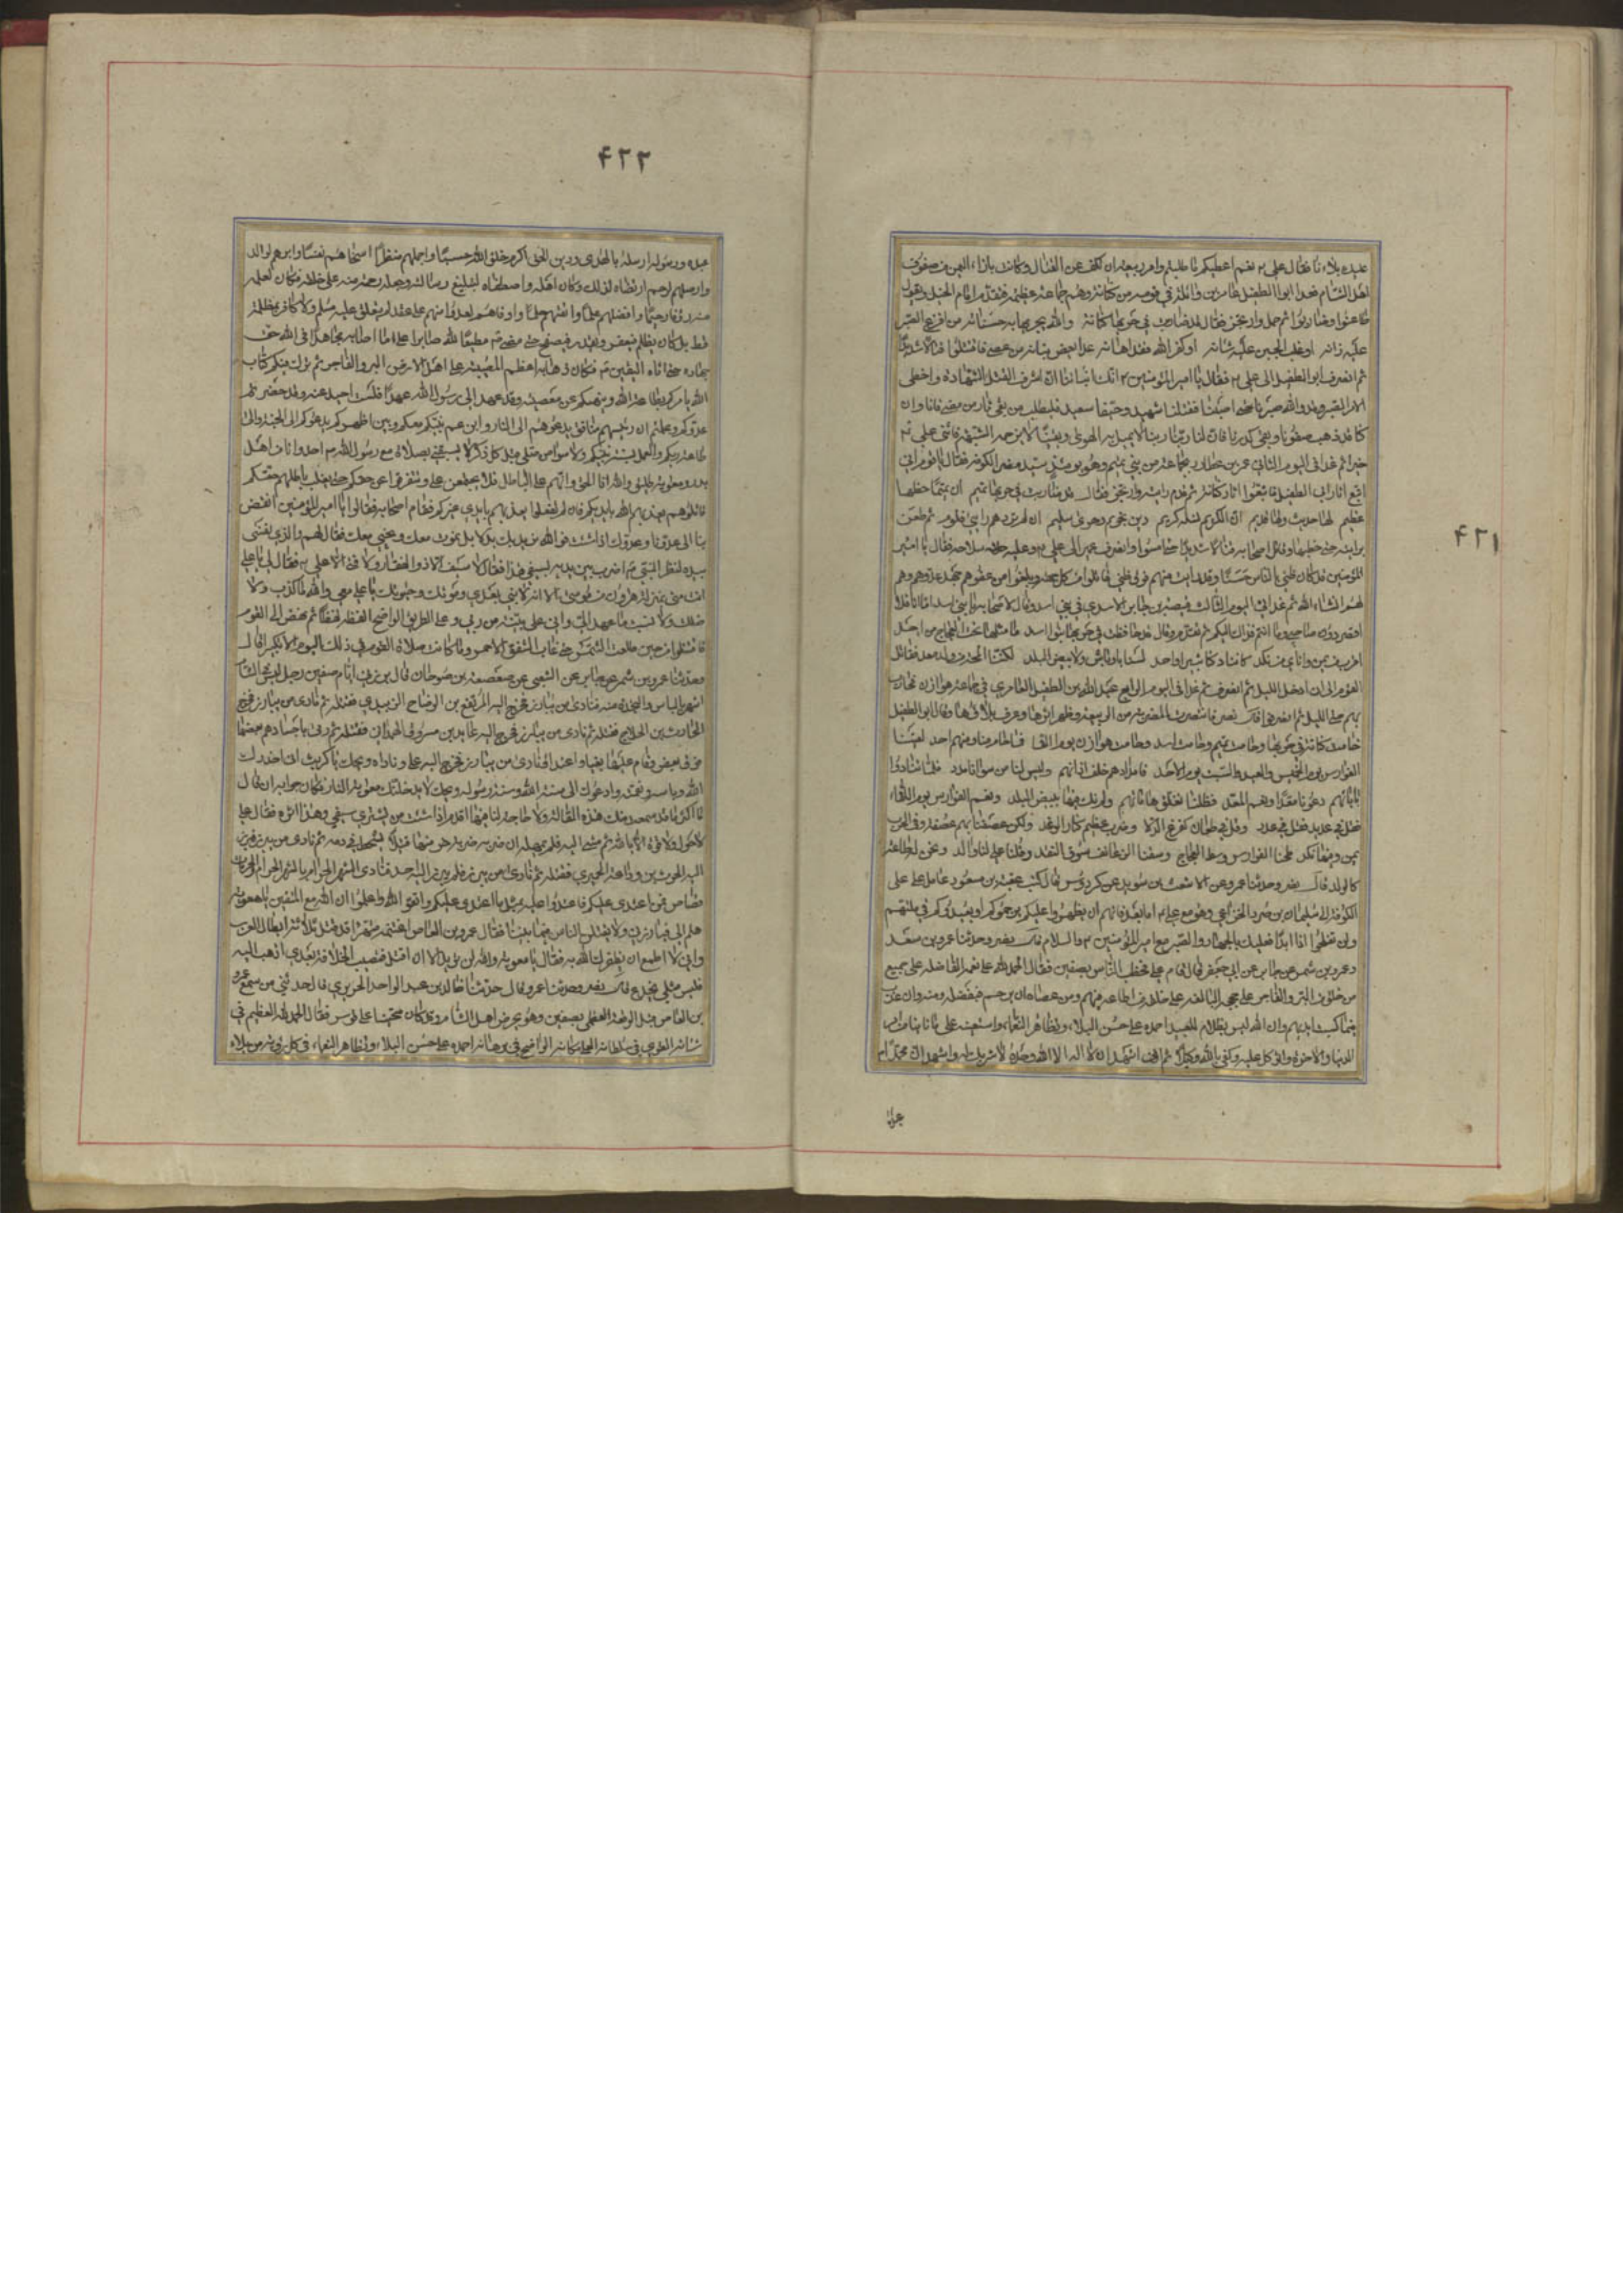 ۴۲۱
فقال علي نعم اعطيكم ما طلبتم وامر ربيعة ان تكف عن القتال وكانت بازاء اليمن من صفوف
اهل الشام فغدا ابوا الطفيل عامر بن واثلة في قومه من كنانة وهم جماعة عظيمة فتقدم امام الخيل ويقول
طاعنوا وضاربوا ثم حمل وارتجز فقال قد ضاربت في حربها كنانة والله يجزيها به جنانه من افرغ الصبر
عليه زانه او غلب الجبن عليه شانه او كفر الله فقد اهانه غدا يعض بنانه من عصى فاقتتلوا قتالا شديدا
ثم انصرف ابو الطفيل الى علي فقال يا امير المؤمنين انك انباتنا ان اشرف القتل الشهادة واحظى
الامر الصبر وقد والله صبرنا حتى اصبنا فقتيلنا شهيد وحينا سعيد فليطلب من بقي ثار من مضى فانا وان
كنا قد ذهب صفونا وبقي كدرنا فان لنا دينا لا يميل به الهوى ويقينا لا تزحمه الشبهة فاثنى علي
خيرا ثم غدا في اليوم الثاني عمير بن عطارد بجماعة من بني تميم وهو يومئذ سيد مضر الكوفة فقال يا قوم اني
اتبع اثار ابي الطفيل فاتبعوا اثار كنانة ثم قدم رايته وارتجز فقال قد ضاربت في حربها تميم ان تميما خطبها
عظيم لها حديث ولها قديم ان الكريم نسله كريم دين قويم وهوى سليم ان لم تردهم رايتي فلوموا ثم طعن
برايته حتى خضبها وقاتل اصحابه قتالا شديدا حتى امسوا وانصرف عمير الى علي وعليه سلاحه فقال يا امير
المؤمنين قد كان ظني بالناس حسنا وقد رايت منهم فوق ظني قاتلوا من كل جهة وبلغوا من عفوهم جهد عدوهم وهم
لهم انشاء الله ثم غدا في اليوم الثالث قبيصة بن جابر الاسدي في بني اسد وقال لاصحابه يا بني اسد اما انا فلا
اقصر دون صاحبي واما انتم فذاك اليكم ثم تقدم وقال قد حافظت في حربها بنوا اسد ما مثلها تحت العجاج من احد
اقرب من يمن وانأى من نكد كاننا ركنا ثبير او احد لسنا باوباش ولا بيض البلد لكننا المحة من ولد معد فقاتل
القوم الى ان دخل الليل ثم انصرف ثم غدا في اليوم الرابع عبد الله بن الطفيل العامري في جماعة هوازن فحارب
بهم حتى الليل ثم انصرفوا قال نصر فانتصفت المضرية من الربيعة وظهر اثرها وعرف بلاؤها وقال ابو الطفيل
حامت كنانة في حربها وحامت تميم وحامت اسد وحامت هوازن يوم اللقا فما خام منا ومنهم احد لقينا
الفوارس يوم الخميس والعيد والسبت يوم الاحد فامدادهم خلف اذانهم وليس لنا من سوانا مدد فلما تنادوا
بابائهم دعونا معدا ونعم المعد فظلنا نفلق هاماتهم ولم نك فيها ببيض البلد ونعم الفوارس يوم اللقاء
فقل في عديد وقل في عدد وقل في طعان كفرغ الدلا وضرب عظيم كنار الوقد ولكن عصفنا بهم عصفة وفي الحرب
يمن وفيها نكد طحنا الفوارس وسط العجاج وسقنا الزعانف سوق النقد وقلنا علي لنا والد ونحن له طاعة
كالولد قال نصر وحدثنا عمرو عن الاشعث بن سويد عن كردوس قال كتب عقبة بن مسعود عامل علي على
الكوفة الى سليمان بن صرد الخزاعي وهو مع علي اما بعد فانهم ان يظهروا عليكم يرجموكم او يعيدوكم في ملتهم
ولن تفلحوا اذا ابدا فعليك بالجهاد والصبر مع امير المؤمنين والسلام قال نصر وحدثنا عمرو بن سعد
وعمرو بن شمر عن جابر عن ابي جعفر قال قام علي فخطب الناس بصفين فقال الحمد لله على نعمه الفاضلة على جميع
من خلق من البر والفاجر وعلى حججه البالغة على خلقه من اطاعه فيهم ومن عصاه ان يرحم فبفضله ومنه وان عذب
فبما كسبت ايديهم وان الله ليس بظلام للعبيد احمده على حسن البلاء وتظاهر النعماء واستعينه على ما نابنا من امر
الدنيا والاخرة واتوكل عليه وكفى بالله وكيلا ثم اني اشهد ان لا اله الا الله وحده لا شريك له واشهد ان محمدا
عبده
۴۲۲
عبده ورسوله ارسله بالهدى ودين الحق اكرم خلق الله حسبا واجملهم منظرا اسخاهم نفسا وابرهم لوالد
واوصلهم لرحم ارتضاه لذلك وكان اهله واصطفاه لتبليغ رسالته وجعله رحمة منه على خلقه فكان لعلمه
منه رؤفا رحيما وافضلهم علما واثقلهم حلما واوفاهم لعهد وامنهم على عقد لم يتعلق عليه مسلم ولا كافر بمظلمة
قط بل كان يظلم فيعفو ويقدر فيصفح حتى مضى مطيعا لله صابرا على ما اصابه مجاهدا في الله حق
جهاده حتى اتاه اليقين فكان ذهابه اعظم المصيبة على اهل الارض البر والفاجر ثم ترك فيكم كتاب
الله يامركم بطاعة الله وينهيكم عن معصيته وقد عهد الى رسول الله عهدا فلست احيد عنه وقد حضرتم
عدوكم وعلمتم ان رئيسهم منافق يدعوهم الى النار وابن عم نبيكم معكم وبين اظهركم يدعوكم الى الجنة والى
طاعة ربكم والعمل بسنة نبيكم ولا سوا من صلى قبل كل ذكر لا يسبقني بصلاة مع رسول الله احد وانا من اهل
بدر ومعوية طليق والله انا الحق وانهم على الباطل فلا يجتمعن عليه وتتفرقوا عن حقكم حتى يغلب باطلهم حقكم
قاتلوهم يعذبهم الله بايديكم فان لم تفعلوا يعذبهم بايدي غيركم فقام اصحابه فقالوا يا امير المؤمنين انهض
بنا الى عدونا وعدوك اذا شئت فوالله ما نريد بك بدلا بل نموت معك ونحيى معك فقال لهم والذي نفسي
بيده لنظر النبي اضرب بين يديه بسيفي هذا فقال لا سيف الا ذو الفقار ولا فتى الا علي فقال لي يا علي
انت مني بمنزلة هرون من موسى الا انه لا نبي بعدي وموتك وحيوتك يا علي معي والله ما كذبت ولا
ضللت ولا نسيت ما عهد الي واني على بينة من ربي وعلى الطريق الواضح القطه لقطا ثم نهض الى القوم
فاقتتلوا من حين طلعت الشمس حتى غاب الشفق الاحمر وما كانت صلاة القوم في ذلك اليوم الا تكبيرا قال
وحدثنا عمرو بن شمر عن جابر عن الشعبي عن صعصعة بن صوحان قال برز في ايام صفين رجل
اشهر بالباس والنجدة منه فنادى من يبارز فخرج اليه المرتفع بن الوضاح الزبيدي فقتله ثم نادى من يبارز فخرج
الحارث بن الجلاح فقتله ثم نادى من يبارز فخرج اليه عابد بن مسروق الهمداني فقتله ثم رمى باجسادهم بعضها
فوق بعض وقام عليها بغيا واعتدا فنادى من يبارز فخرج اليه علي وناداه ويحك يا كريب اني احذرك
الله وباسه ونقمته وادعوك الى سنة الله وسنة رسوله ويحك لا يدخلنك معوية النار فكان جوابه ان قال
ما اكثر ما قد سمعت منك هذه المقالة ولا حاجة لنا فيها اقدم اذا شئت من يشتري سيفي وهذا اثره فقال علي
لا حول ولا قوة الا بالله ثم مشى اليه فلم يمهله ان ضربه ضربة خر منها قتيلا يتشحط في دمه ثم نادى من يبرز فبرز
اليه الحرث بن وداعة الحميري فقتله ثم نادى من يبرز فلم يبرز اليه احد فنادى الشهر الحرام بالشهر الحرام والحرمات
قصاص فمن اعتدى عليكم فاعتدوا عليه بمثل ما اعتدى عليكم واتقوا الله واعلموا ان الله مع المتقين يا معوية
هلم الي فبارزني ولا يقتلن الناس فيما بيننا فقال عمرو بن العاص اغتنمه منتهزا قد قتل ثلاثة من ابطال العرب
واني لا اطمع ان يظفرك الله به فقال يا معوية والله لن تريد الا ان اقتل فتصيب الخلافة بعدي اذهب اليه
فليس مثلي يخدع قال نصر وحدثنا عمرو قال حدثنا خالد بن عبد الواحد الجزيري قال حدثني من سمع عمرو
بن العاص قبل الوقعة العظمى بصفين وهو يحرض اهل الشام وكان منحنيا على قوس فقال الحمد لله العظيم في
شانه القوي في سلطانه العلي مكانه الواضح في برهانه احمده على حسن البلاء وتظاهر النعماء في كل رزية من بلاء